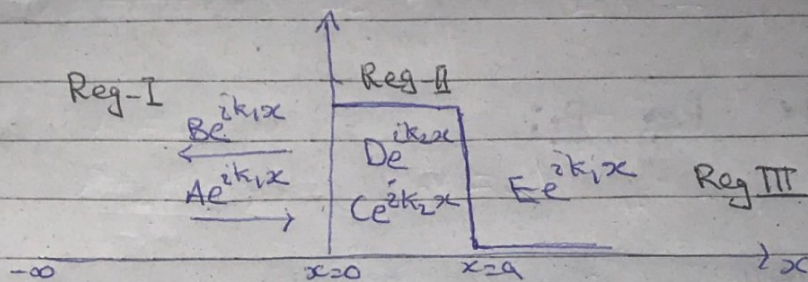 Reg-I
Reg-II
Be^{ik₁x}
De^{ik₂x}
Ae^{ik₁x}
Ce^{ik₂x}
Ee^{ik₁x}
Reg III
-∞
x=0
x=a
x